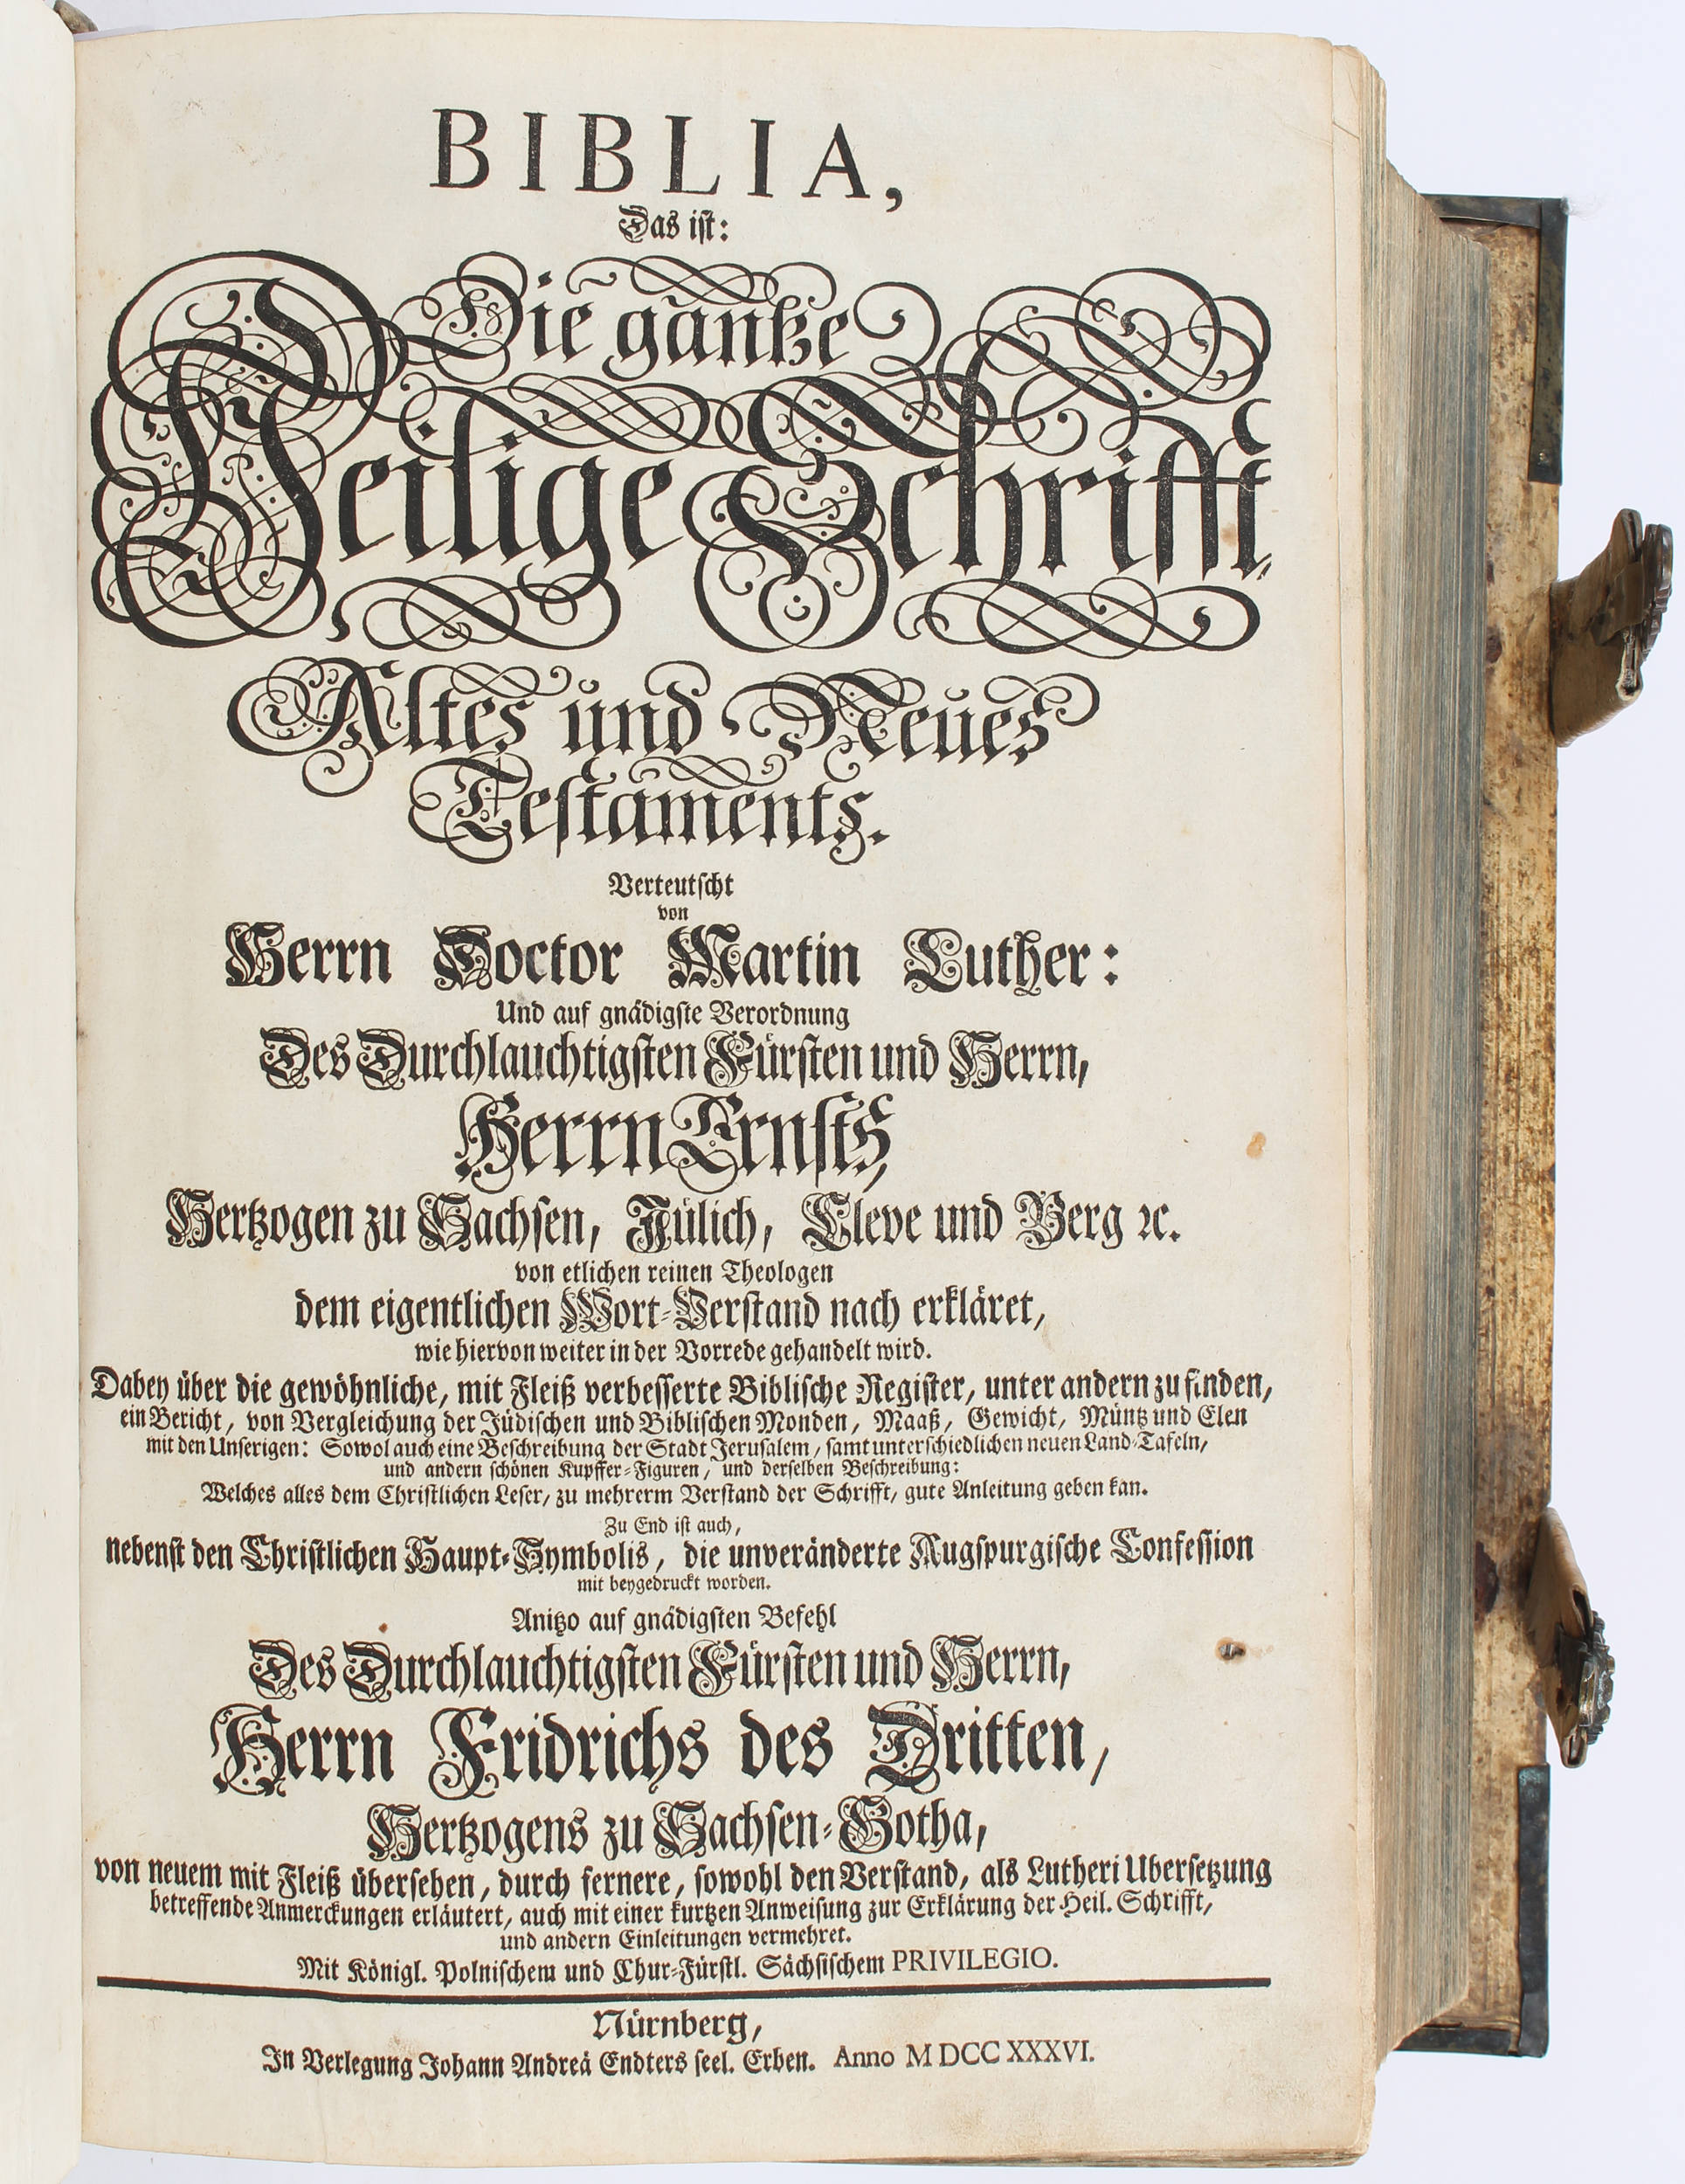 BIBLIA,
Das iſt:
Die gantze
Heilige Schrifft,
Altes und Neues
Teſtaments.
Verteutſcht
von
Herrn Doctor Martin Luther:
Und auf gnädigſte Verordnung
Des Durchlauchtigſten Fürſten und Herrn,
Herrn Ernſts,
Hertzogen zu Sachſen, Jülich, Cleve und Berg ꝛc.
von etlichen reinen Theologen
dem eigentlichen Wort-Verſtand nach erkläret,
wie hiervon weiter in der Vorrede gehandelt wird.
Dabey über die gewöhnliche, mit Fleiß verbeſſerte Bibliſche Regiſter, unter andern zu finden,
ein Bericht, von Vergleichung der Jüdiſchen und Bibliſchen Monden, Maaß, Gewicht, Müntz und Elen
mit den Unſerigen: Sowol auch eine Beſchreibung der Stadt Jeruſalem, ſamt unterſchiedlichen neuen Land-Tafeln,
und andern ſchönen Kupffer-Figuren, und derſelben Beſchreibung:
Welches alles dem Chriſtlichen Leſer, zu mehrerm Verſtand der Schrifft, gute Anleitung geben kan.
Zu End iſt auch,
nebenſt den Chriſtlichen Haupt-Symbolis, die unveränderte Augſpurgiſche Confeſſion
mit beygedruckt worden.
Anitzo auf gnädigſten Befehl
Des Durchlauchtigſten Fürſten und Herrn,
Herrn Fridrichs des Dritten,
Hertzogens zu Sachſen-Gotha,
von neuem mit Fleiß überſehen, durch fernere, ſowohl den Verſtand, als Lutheri Uberſetzung
betreffende Anmerckungen erläutert, auch mit einer kurtzen Anweiſung zur Erklärung der Heil. Schrifft,
und andern Einleitungen vermehret.
Mit Königl. Polniſchem und Chur-Fürſtl. Sächſiſchem PRIVILEGIO.
Nürnberg,
In Verlegung Johann Andreä Endters ſeel. Erben. Anno M DCC XXXVI.